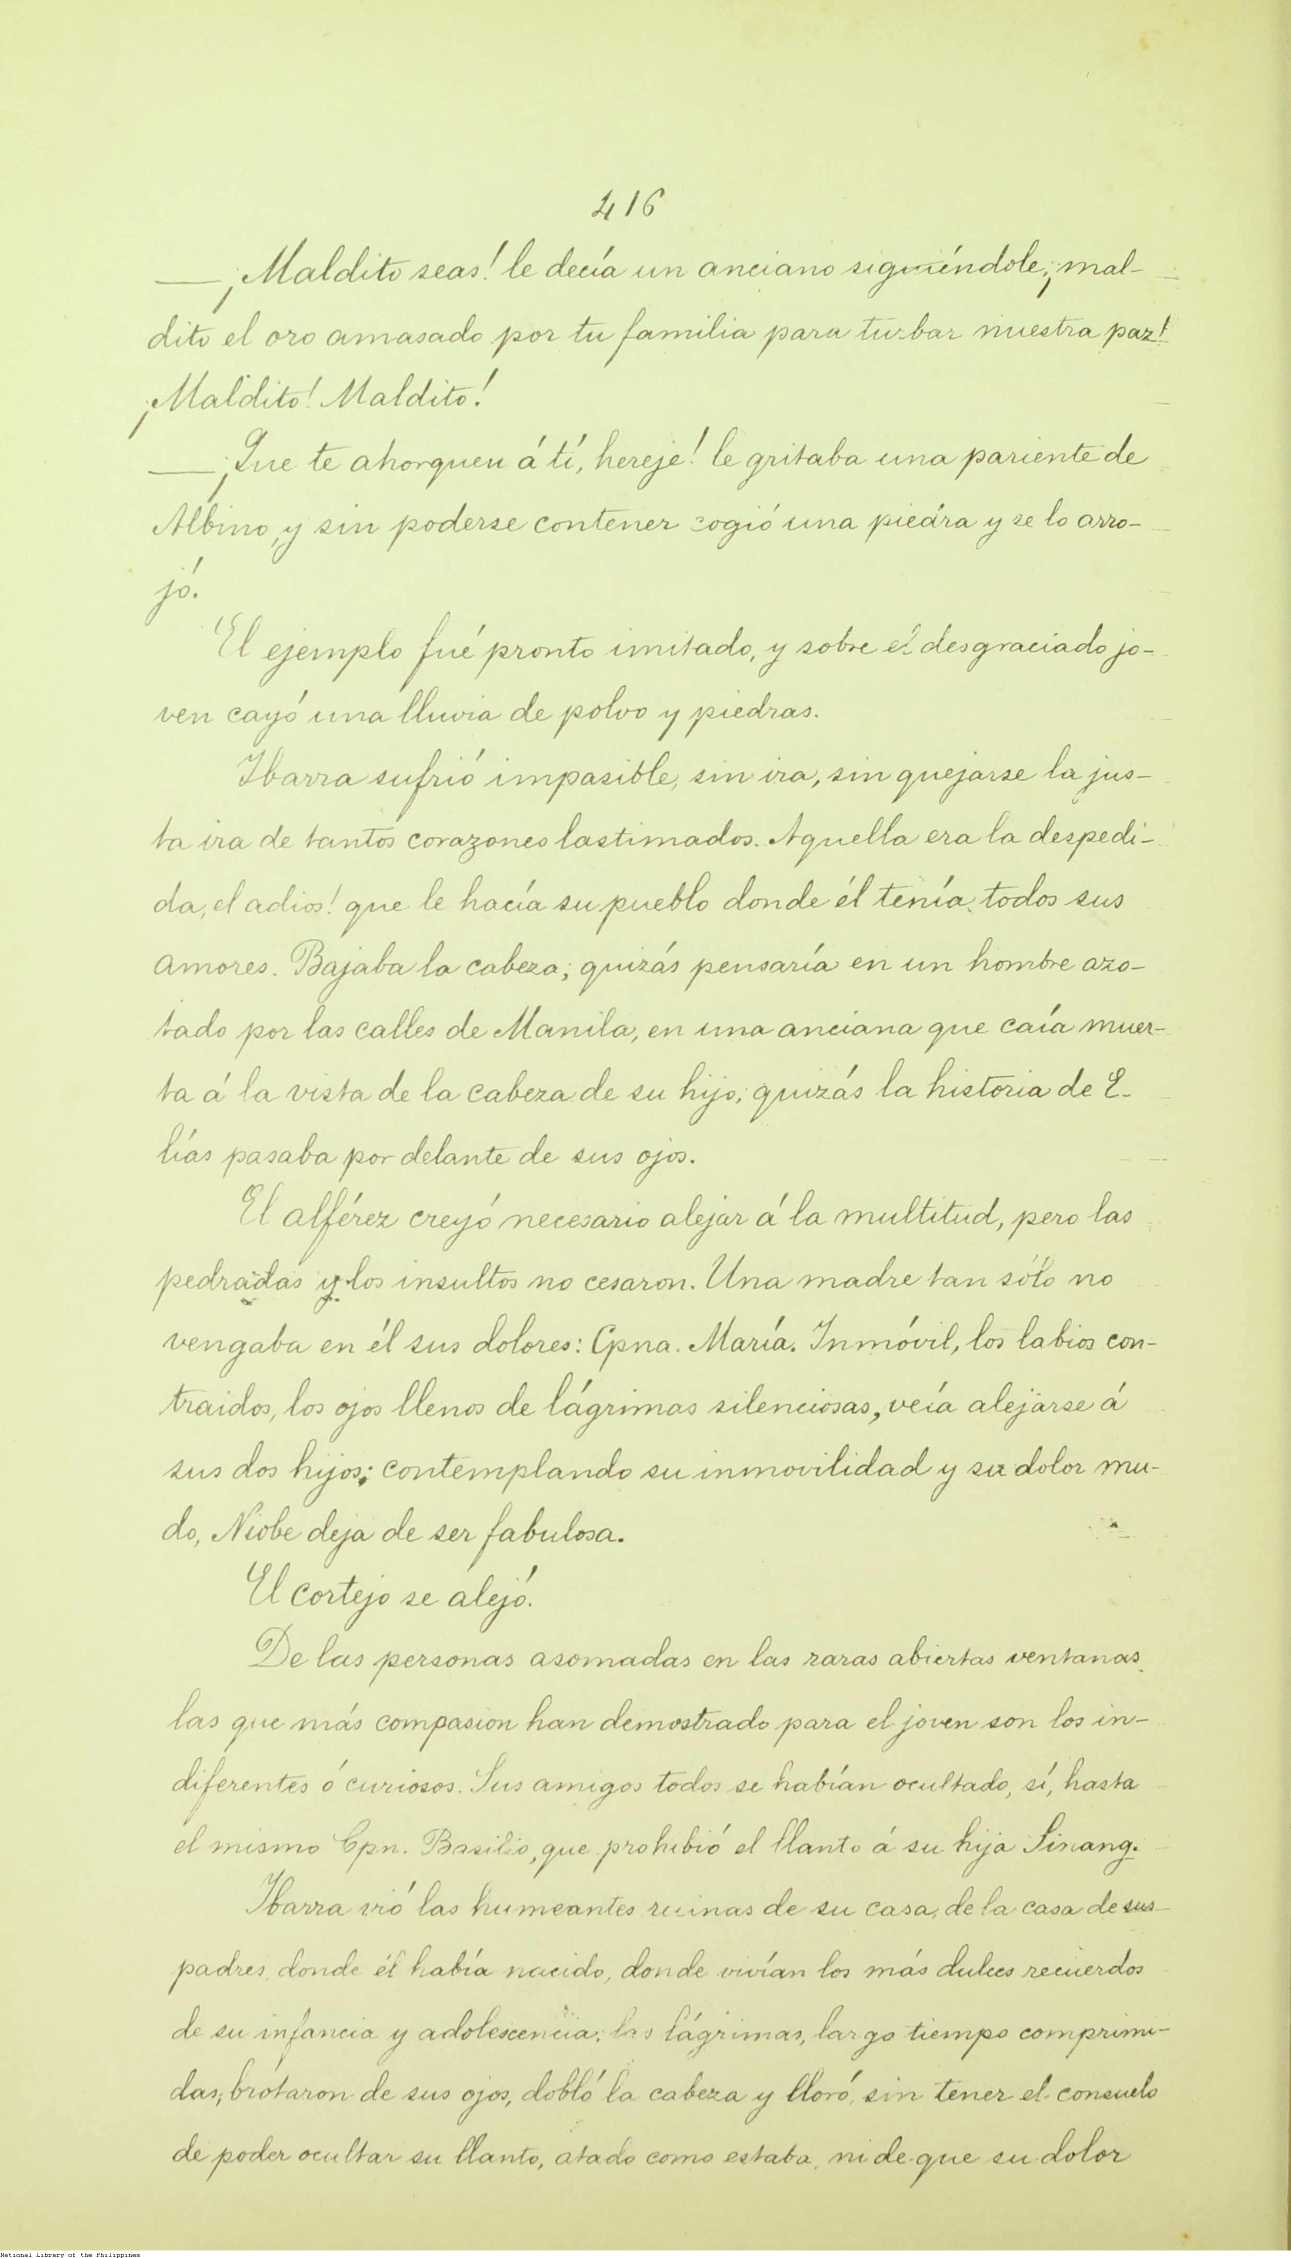 416
— ¡Maldito seas! le decía un anciano siguiéndole, ¡mal-
dito el oro amasado por tu familia para turbar nuestra paz!
¡Maldito! Maldito!
— ¡Que te ahorquen á tí, hereje! le gritaba una pariente de
Albino, y sin poderse contener cogió una piedra y se lo arro-
jó.
El ejemplo fué pronto imitado, y sobre el desgraciado jo-
ven cayó una lluvia de polvo y piedras.
Ibarra sufrió impasible, sin ira, sin quejarse la jus-
ta ira de tantos corazones lastimados. Aquella era la despedi-
da, el adios! que le hacía su pueblo donde él tenía todos sus
amores. Bajaba la cabeza; quizás pensaría en un hombre azo-
tado por las calles de Manila, en una anciana que caía muer-
ta á la vista de la cabeza de su hijo; quizás la historia de E-
lías pasaba por delante de sus ojos.
El alférez creyó necesario alejar á la multitud, pero las
pedradas y los insultos no cesaron. Una madre tan sólo no
vengaba en él sus dolores: Cpna. María. Inmóvil, los labios con-
traidos, los ojos llenos de lágrimas silenciosas, veía alejarse á
sus dos hijos; contemplando su inmovilidad y su dolor mu-
do, Niobe deja de ser fabulosa.
El cortejo se alejó.
De las personas asomadas en las raras abiertas ventanas
las que más compasion han demostrado para el joven son los in-
diferentes ó curiosos. Sus amigos todos se habían ocultado, sí, hasta
el mismo Cpn. Basilio, que prohibió el llanto á su hija Sinang.
Ibarra vió las humeantes ruinas de su casa, de la casa de sus
padres, donde él había nacido, donde vivían los más dulces recuerdos
de su infancia y adolescencia; las lágrimas, largo tiempo comprimi-
das, brotaron de sus ojos, dobló la cabeza y lloró, sin tener el consuelo
de poder ocultar su llanto, atado como estaba, ni de que su dolor
National Library of the Philippines